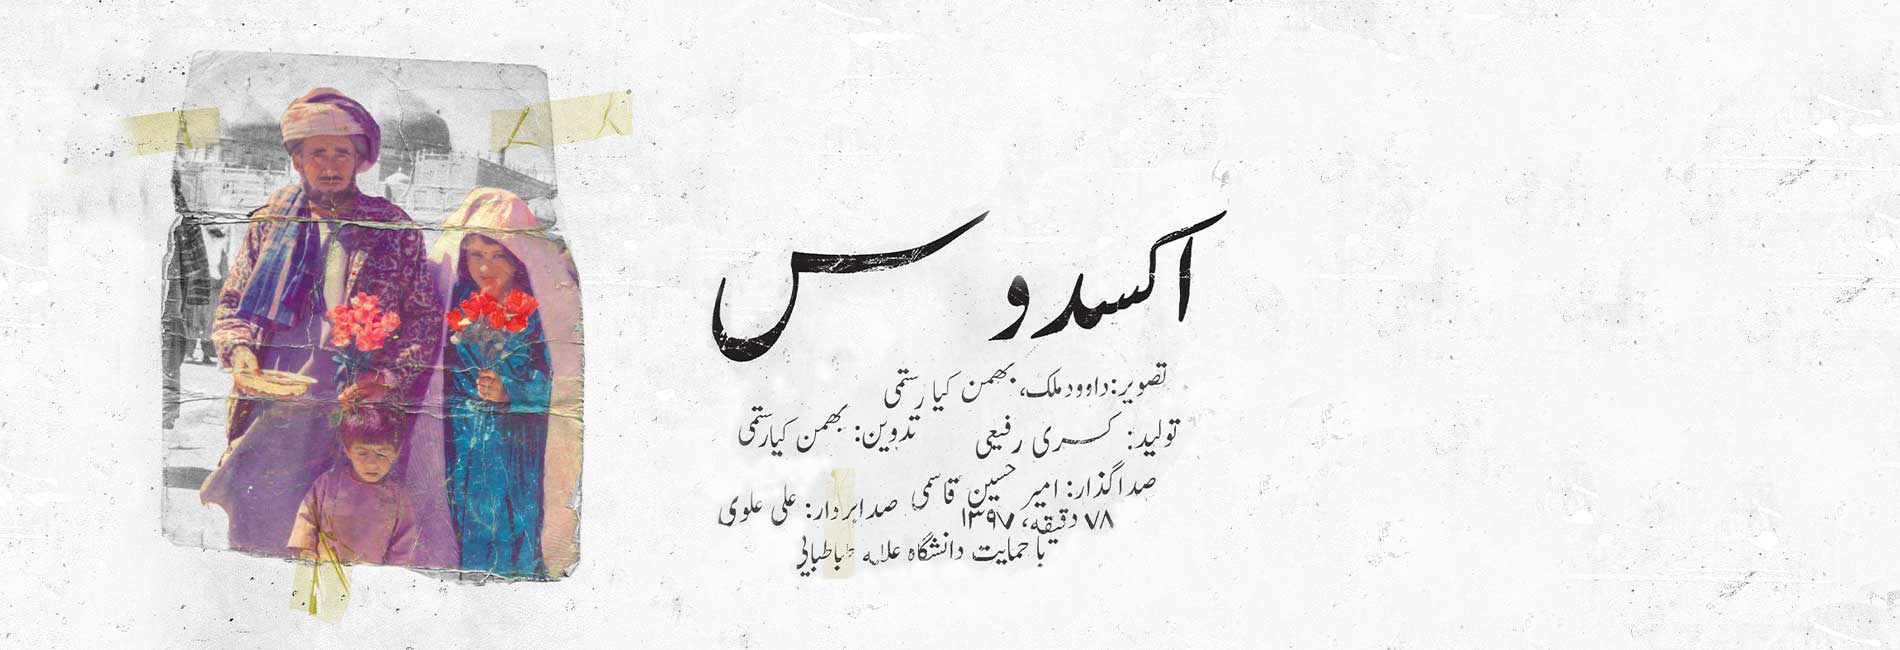 اکسدوس
تصویر: داوود ملک، بهمن کیارستمی
تولید: کسری رفیعی تدوین: بهمن کیارستمی
صداگذار: امیر حسین قاسمی صدابردار: علی علوی
۷۸ دقیقه، ۱۳۹۷
با حمایت دانشگاه علامه طباطبایی